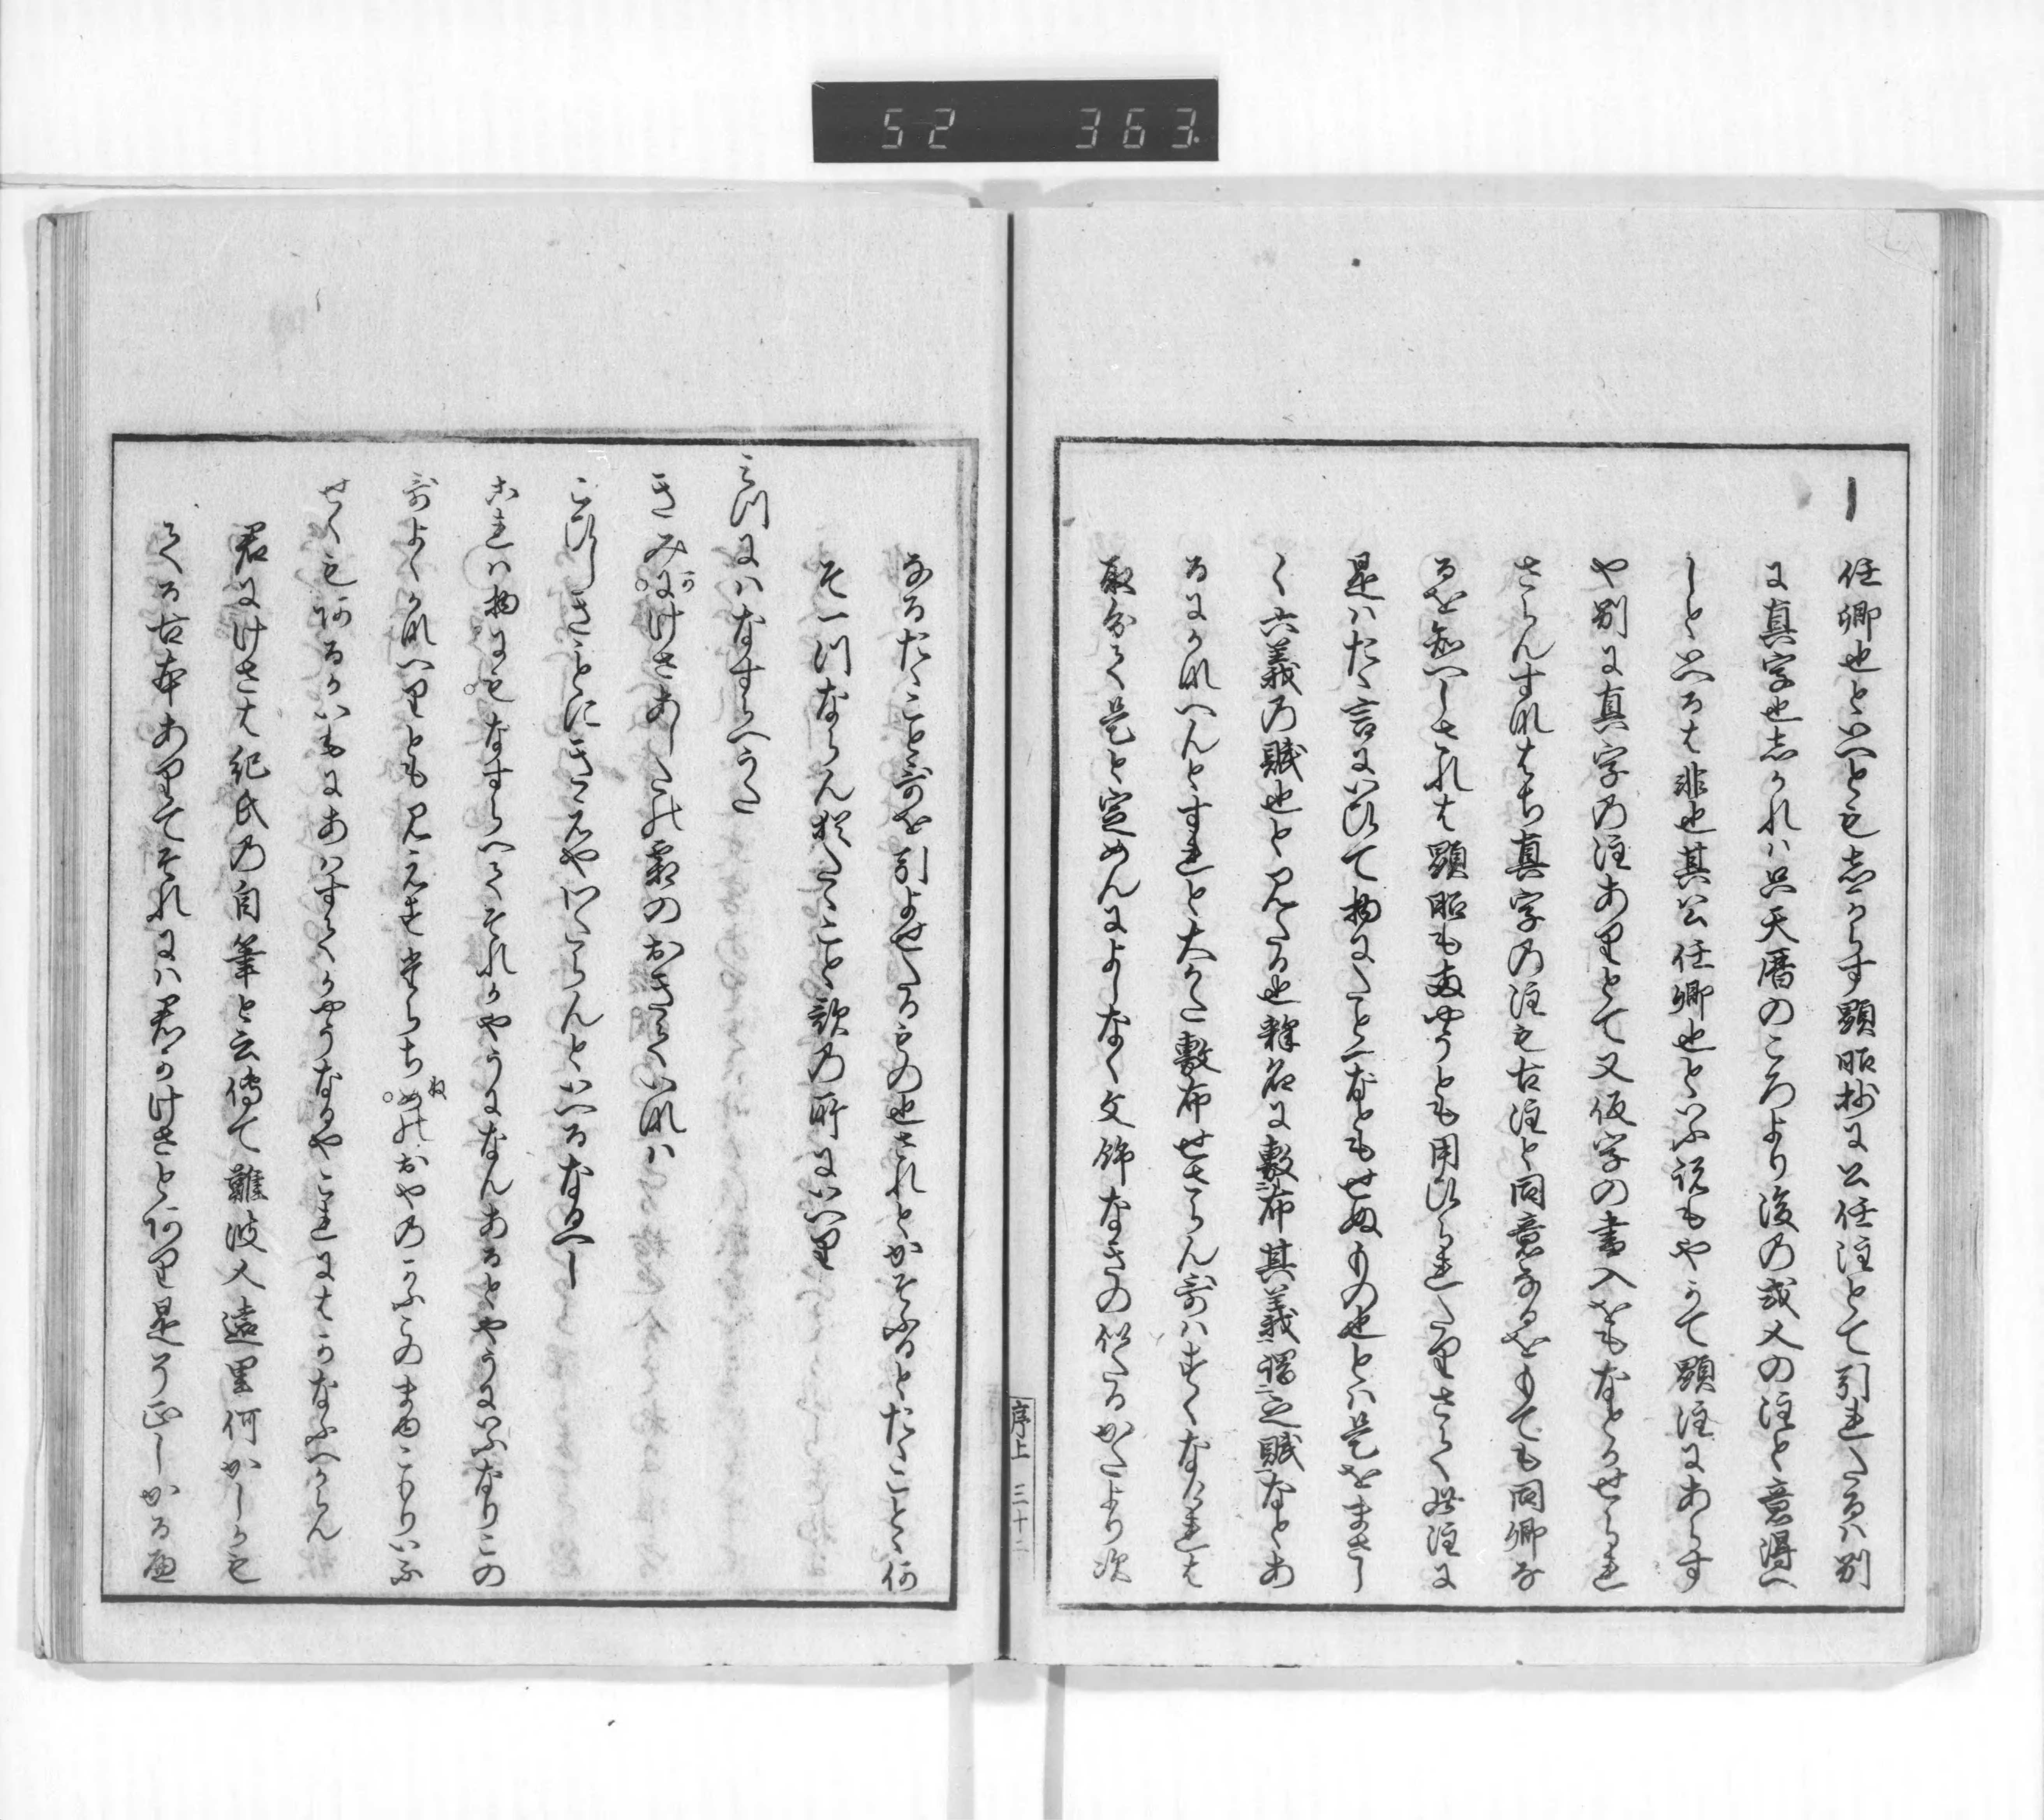 52 363
任卿也といへとも志からす顕昭抄に公任注とて引れたるハ別
に真字也志かれハ只天暦のころより後の或人の注と意得へ
しといへるは非也其公任卿也といふ説もやかて顕注にあらす
や別に真字の注ありとて又仮字の書入をもなとかせられ
さらんすなはち真字の注も古注と同意なるをもても同卿な
るを知へしされは顕昭も
とも用ひられたりさて此注に
是ハたゝ言にいひて物にたとへなともせぬもの也とハ是をまさし
く六義の賦也と見たる也釋名に敷布其義謂之賦なとあ
るにかなへんとすれと大かた敷布せさらん哥ハすくなけれは
取分て是と定めんによしなく文飾なきの似たるかたより次
なるたゝこと哥を引よせたるもの也されとかそふるとたゝことゝ何
そ一つならん猶たゝこと歌の所にいへり
三つにハなすらへうた
きみにけさあしたの霜のおきていなハ
こひしきことにきえやわたらんといへるなるへし
これハ物にもなすらへてそれかやうになんあるとやうにいふなりこの
哥よくかなへりとも見えすたらちめのおやのかふこのまゆこもりいふ
せくもあるかいもにあはすてかやうなるやこれにはかなふへからん
君にけさは紀氏の自筆と云傳て難波人遠里何かしかも
てる古本ありてそれにハ君かけさとあり是そ正しかる へ
序上 三十二